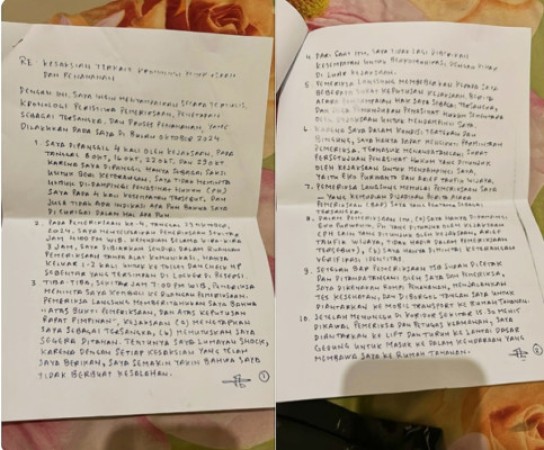 RE KESAKSIAN TERKAIT KRONOLOGI PEMERIKSAAN
DAN PENAHANAN
DENGAN INI, SAYA INGIN MENYAMPAIKAN SECARA TERTULIS,
KRONOLOGI PERISTIWA PEMERIKSAAN, PENETAPAN
SEBAGAI TERSANGKA, DAN PROSES PENAHANAN, YANG
DILAKUKAN PADA SAYA DI BULAN OKTOBER 2024.
1. SAYA DIPANGGIL 4 KALI OLEH KEJAKSAAN, PADA
TANGGAL 8 OKT, 16 OKT, 22 OKT, DAN 29 OKT
KARENA SAYA DIPANGGIL HANYA SEBAGAI SAKSI
UNTUK BERI KETERANGAN, SAYA TIDAK MEMINTA
UNTUK DIDAMPINGI PENASIHAT HUKUM (PH)
SAYA PADA 4 KALI KESEMPATAN TERSEBUT, DAN
JUGA TIDAK ADA INDIKASI APA PUN BAHWA SAYA
DICURIGAI DALAM HAL APA PUN
2. PADA PEMERIKSAAN KE-4, TANGGAL 29 OKTOBER
2024, SAYA MENYELESAIKAN PEMERIKSAAN SEKITAR
JAM 4:00 PM WIB. KEMUDIAN SELAMA KIRA-KIRA
3 JAM, SAYA DIBIARKAN SENDIRI DALAM RUANGAN
PEMERIKSAAN TANPA ALAT KOMUNIKASI, HANYA
KELUAR 1-2 KALI UNTUK KE TOILET DAN CHECK HP
SEBENTAR YANG TERSIMPAN DI LOCKER DI RESEPSI.
3. TIBA-TIBA, SEKITAR JAM 7:00 PM WIB, PEMERIKSA
MEMINTA SAYA KEMBALI KE RUANGAN PEMERIKSAAN.
PEMERIKSA LANGSUNG MEMBERITAHUKAN SAYA BAHWA
"ATAS BUKTI PEMERIKSAAN, DAN ATAS KEPUTUSAN
RAPAT PIMPINAN", KEJAKSAAN (A) MENETAPKAN
SAYA SEBAGAI TERSANGKA, (B) MEMUTUSKAN SAYA
SEGERA DITAHAN. TENTUNYA SAYA LUMAYAN SHOCK,
KARENA DENGAN SETIAP KESAKSIAN YANG TELAH
SAYA BERIKAN, SAYA SEMAKIN YAKIN BAHWA SAYA
TIDAK BERBUAT KESALAHAN.
1
4. DARI SAAT ITU, SAYA TIDAK LAGI DIBERIKAN
KESEMPATAN UNTUK BERKOMUNIKASI DENGAN PIHAK
DI LUAR KEJAKSAAN.
5. PEMERIKSA LANGSUNG MEMBERIKAN KEPADA SAYA
BEBERAPA SURAT KEPUTUSAN KEJAKSAAN, BERISI
ATAS HAK SAYA SEBAGAI TERSANGKA,
DAN JUGA PENASIHAT HUKUM
UNTUK MENDAMPINGI SAYA.
6. KARENA SAYA DALAM KONDISI TERTEKAN DAN
BINGUNG, SAYA HANYA DAPAT MENGIKUTI PERMINTAAN
PEMERIKSA, TERMASUK MENANDATANGANI SURAT
PERSETUJUAN PENASIHAT HUKUM YANG DITUNJUK
OLEH KEJAKSAAN UNTUK MENDAMPINGI SAYA,
YAITU EKO PURWANTO DAN ARIEF TAUFIK WIJAYA.
7. PEMERIKSA LANGSUNG MEMULAI PEMERIKSAAN SAYA
— YANG KEMUDIAN DIJADIKAN BERITA ACARA
PEMERIKSAAN (BAP) SAYA YANG PERTAMA SEBAGAI
TERSANGKA.
8. DALAM PEMERIKSAAN INI, (A) SAYA HANYA DIDAMPINGI
EKO PURWANTO, PH YANG DITUNJUK OLEH KEJAKSAAN
(PH LAIN YANG DITUNJUK OLEH KEJAKSAAN, ARIEF
TAUFIK WIJAYA, TIDAK HADIR DALAM PEMERIKSAAN
TERSEBUT), (B) SAYA HANYA DIMINTAI KETERANGAN
VERIFIKASI IDENTITAS
9. SETELAH BAP PEMERIKSAAN TSB SUDAH DICETAK
DAN DITANDATANGANI OLEH SAYA DAN PEMERIKSA,
SAYA DIKENAKAN ROMPI PENAHANAN, MENJALANKAN
TES KESEHATAN, DAN DIBORGOL TANGAN SAYA UNTUK
DIANTARKAN KE MOBIL TRANSFER KE RUMAH TAHANAN.
10. SETELAH MENUNGGU DI KORIDOR SEKITAR 15-30 MENIT
DIKAWAL PEMERIKSA DAN PETUGAS KEAMANAN, SAYA
DIANTARKAN KE LIFT DAN TURUN KE LANTAI DASAR
GEDUNG UNTUK MASUK KE DALAM KENDARAAN YANG
MEMBAWA SAYA KE RUMAH TAHANAN.
2